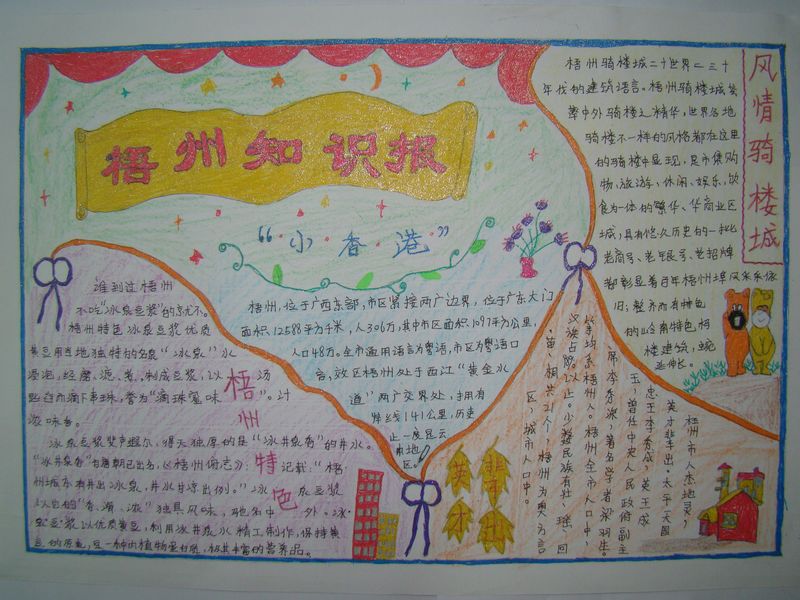 梧州知识报
“小香港”
风情骑楼城
梧州骑楼城二十世界二三十
年代的建筑语言。梧州骑楼城荟
萃中外骑楼之精华，世界各地
骑楼不一样的风格都在这里
的骑楼中显现，是市集购
物、旅游、休闲、娱乐、饮
食为一体的繁华、华商业区
城，具有悠久历史的一批
老商号、老字号、老招牌
都彰显着百年梧州埠风采依
旧；整齐而有特色
楼建筑，蜿
延伸长。
谁到过梧州
不吃“冰泉豆浆”的
梧州特色冰泉豆浆优质
黄豆用当地独特的名泉“冰泉”水
浸泡，经磨、滤、煮，制成豆浆，以
滴下串珠，誉为“滴珠蜜味”。汁
浓味香。
梧州特色
冰泉豆浆
得天独厚的是“冰井泉香”的井水。
“冰井泉香”
记载：“梧
州城东有井出冰泉，井水甘凉
冰泉豆浆
以它的“香、滑、浓”独具风味，驰名中外。冰
泉豆浆以优质黄豆，利用冰井泉水精工制作，保持黄
豆的原色，是一种由植物蛋白质，极其丰富的营养品。
梧州，位于广西东部，市区紧接两广边界，位于广东大门
面积12588平方千米，人306万，其中市区面积1097平方公里，
人口48万。全市通用语言为粤语，市区为粤语口
音，效区梧州处于西江“黄金水
道”两广交界处，拥有
岸线141公里，历史
上一度是云
贵地
区。
英才辈出
梧州市人杰地灵，
英才辈出。太平天国
忠王李秀成，英王成
玉，曾任中央人民政府副主
席李济深，著名学者梁羽生。
等均系梧州人。梧州全市人口中，
汉族占99%以上。少数民族有壮、瑶、回
、苗、桐共21个，梧州为粤方言
区，城市人口中。